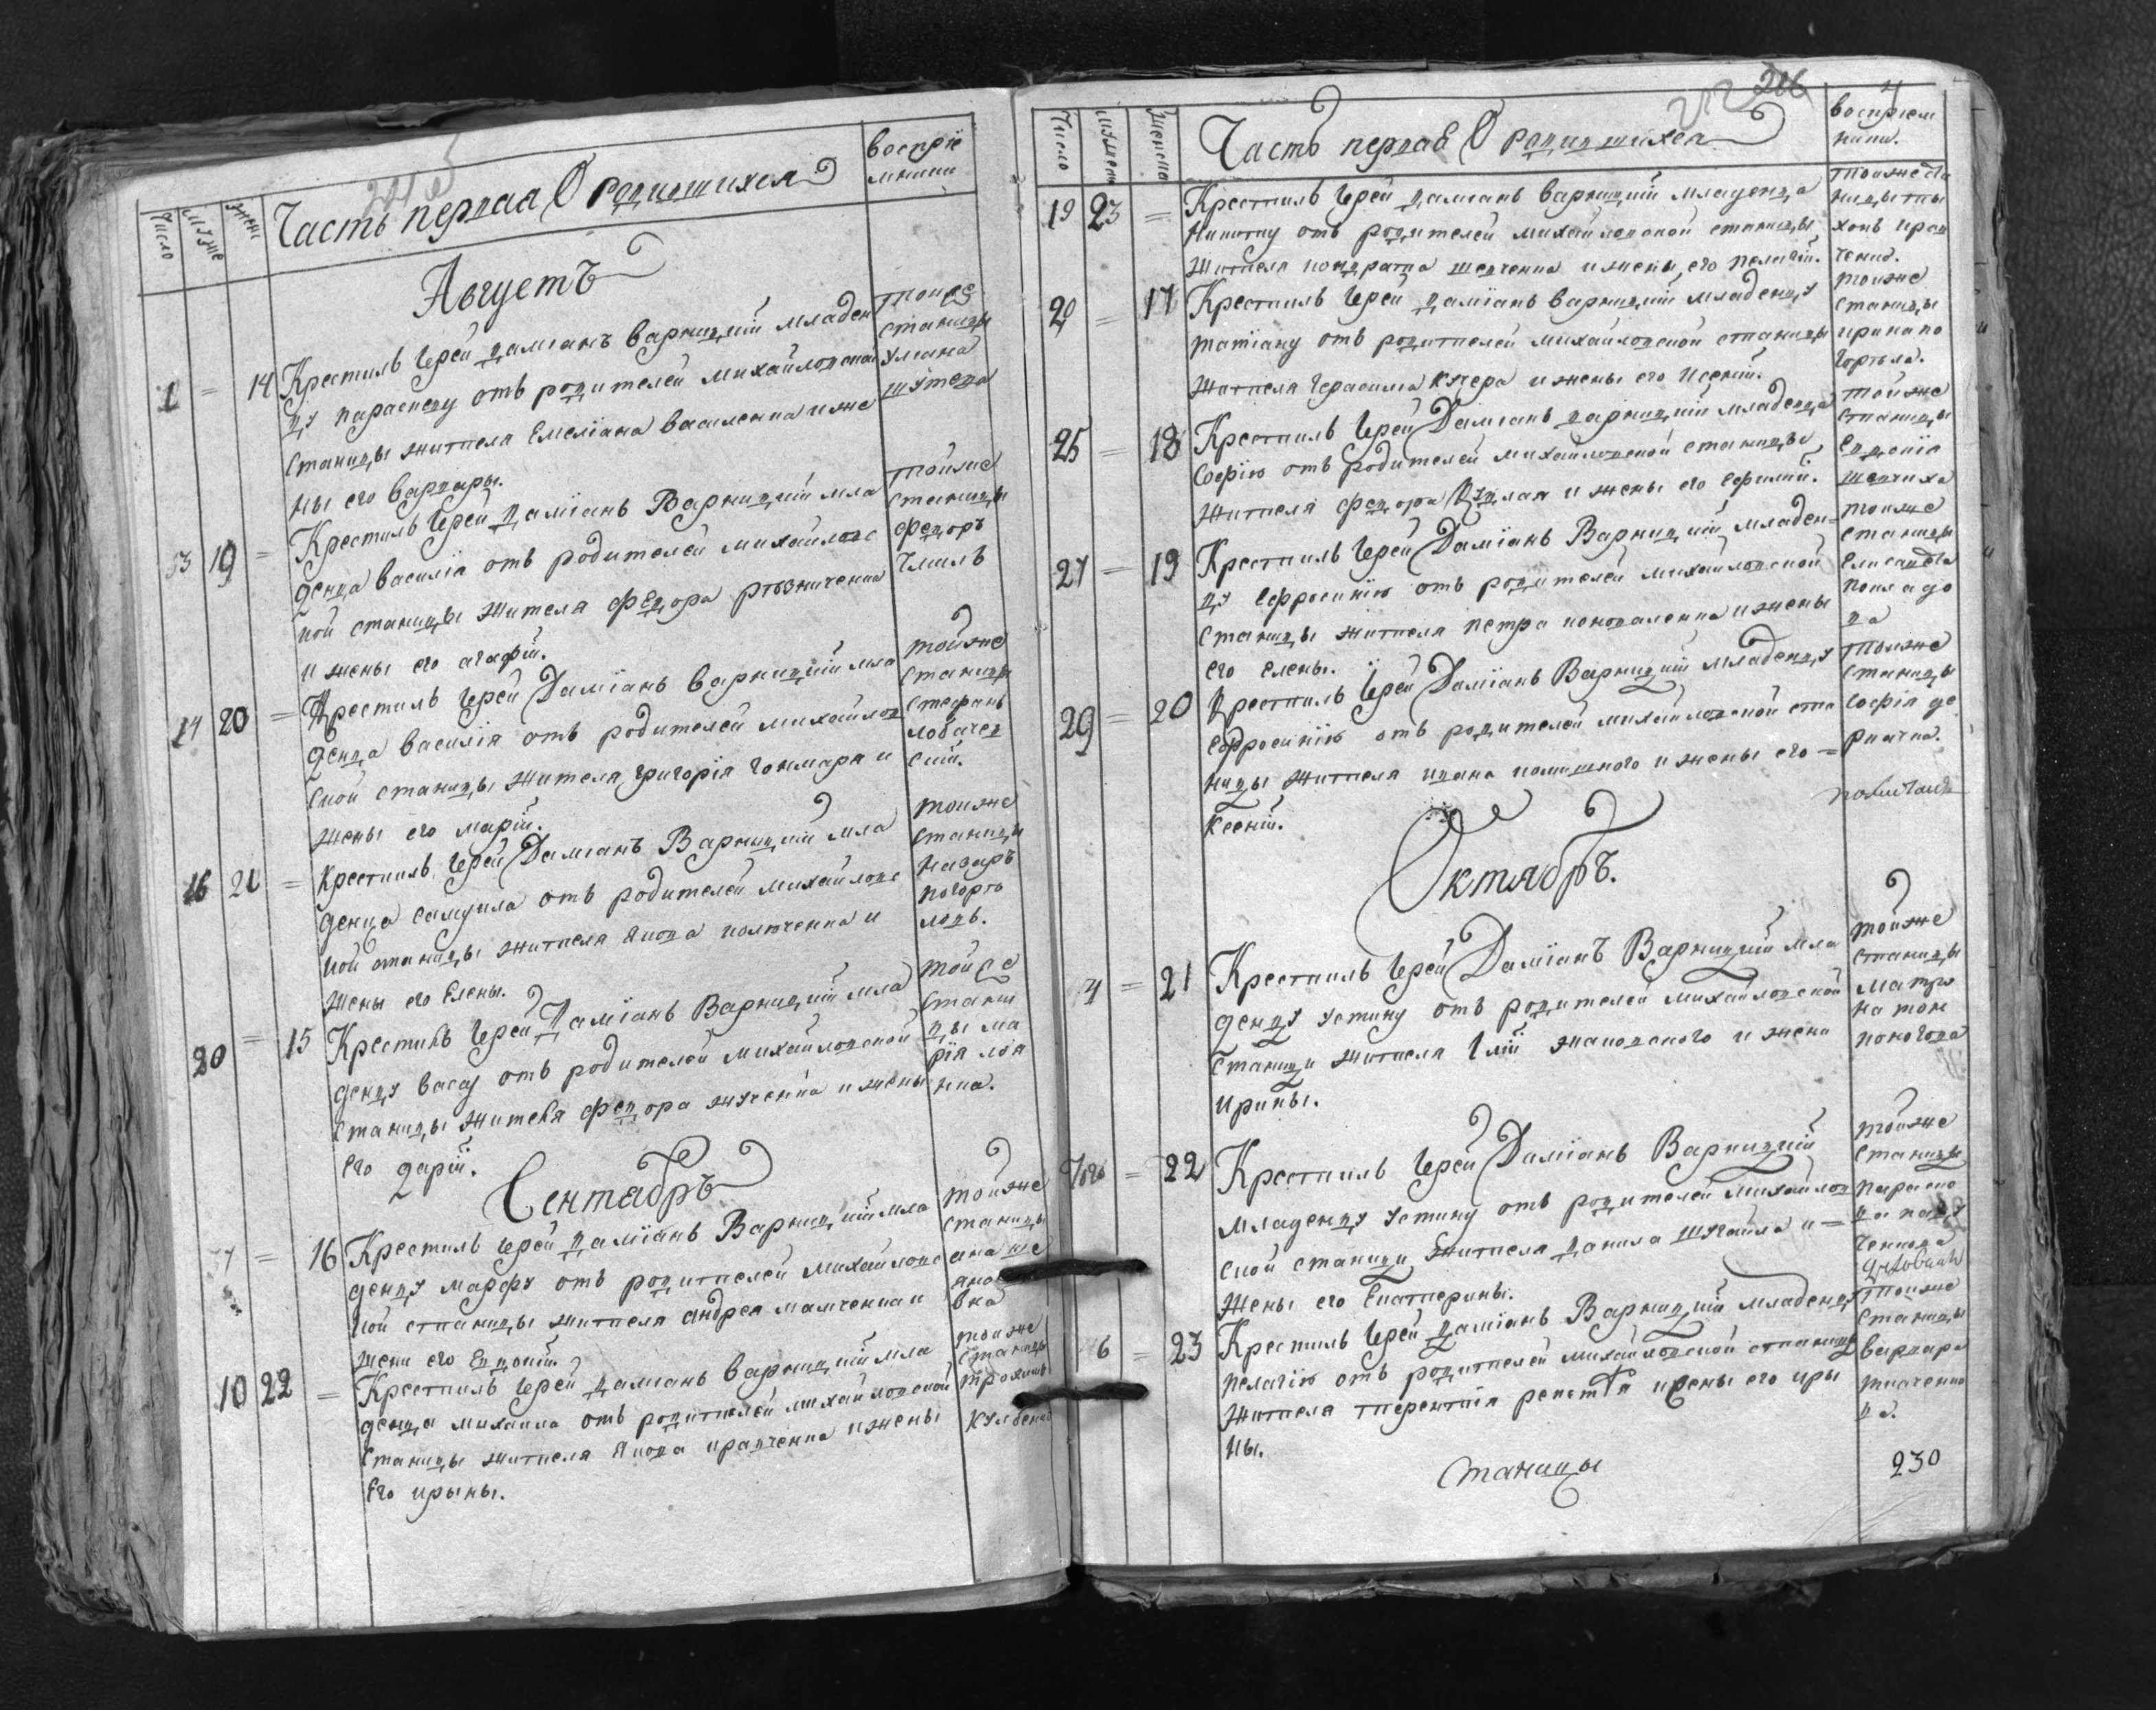 Часть первая О родившихся
воспріе
мники
число
муже
жене
Августъ
1 = 14 Крестилъ Іерей даміанъ варницкій младен
цу параскеву отъ родителей михайловской
станицы жителя Емеліана василенка и же
ны его варвары.
тойже
станицы
уліана
шутева
19 = Крестилъ Іерей даміанъ Варницкій мла
денца василіа отъ родителей михайловс
кой станицы жителя федора резниченка
и жены его агафіи.
тойже
станицы
федоръ
чмиль
14 20 = Крестилъ Іерей Даміанъ варницкій мла
денца василія отъ родителей михайлов
ской станицы жителя григорія гонмаря и
жены его маріи.
тойже
станицы
стефанъ
лобачев
скій.
16 21 = Крестилъ Іерей Даміанъ Варницкій мла
денца самуила отъ родителей михайловс
кой станицы жителя якова колюченка и
жены его Елены.
тойже
станицы
назаръ
погоре
ловъ.
20 = 15 Крестилъ Іерей Даміанъ Варницкій мла
денцу васу отъ родителей михайловской
станицы жителя федора жученка и жены
его даріи.
тойже
стани
цы ма
рія
Сентябръ
= 16 Крестилъ Іерей даміанъ Варницкій мла
денцу марфу отъ родителей михайловс
кой станицы жителя андрея мамченка и
жени его Евдокіи.
тойже
станицы
анна ше
вка
10 22 = Крестилъ Іерей даміанъ варницкій мла
денца михаила отъ родителей михайловской
станицы жителя якова кравченка и жены
его ирыны.
тойже
станицы
трохимъ
212 216
число
мужеск
женска
Часть первая О родившихся
воспріем
ники.
19 23 = Крестилъ Іерей даміанъ варницкій младенца
Никиту отъ родителей михайловской станицы
жителя кондрата шевченка и жены его пелагіи.
тойже ста
ницы ти
хонъ крав
ченко.
20 = 17 Крестилъ Іерей даміанъ варницкій младенцу
татіану отъ родителей михайловской станицы
жителя Герасима кучера и жены его Ксеніи.
тойже
станицы
ирина по
горела.
25 = 18 Крестилъ Іерей Даміанъ варницкій младенца
Софію отъ родителей михайловской станицы
жителя федора и жены его Ефиміи.
тойже
станицы
Евдокіа
шевчиха
27 = 19 Крестилъ Іерей Даміанъ Варницкій младен=
цу Ефросинію отъ родителей михайловской
станицы жителя петра коноваленка и жены
его елены.
тойже
станицы
29 = 20 Крестилъ Іерей Даміанъ Варницкій младенцу
Ефросинію отъ родителей михайловской ста
ницы жителя ивана и жены его =
Ксеніи.
тойже
станицы
Софія де
ркачка.
Октябръ.
4 = 21 Крестилъ Іерей Даміанъ Варницкій мла
денцу устину отъ родителей михайловской
станици жителя Иліи жаковского и жени
ирины.
тойже
станицы
матро
на тон
коногова
Того = 22 Крестилъ Іерей Даміанъ Варницкій
младенцу устину отъ родителей михайлов
ской станици жителя данила шугайла и =
жены его Екатерины.
тойже
станицы
параско
ченкова
6 = 23 Крестилъ Іерей даміанъ Варницкій младенцу
пелагію отъ родителей михайловской станицы
жителя терентія репетя и жены его иры
ны.
тойже
станицы
варвара
ткаченко
ва.
станицы
230